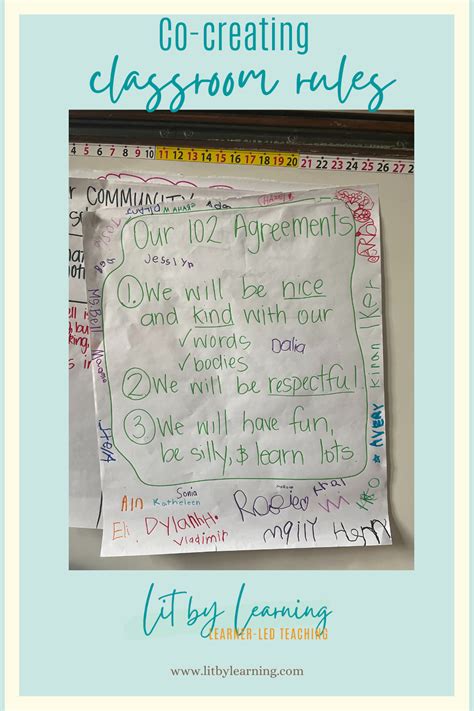 Co-creating
classroom rules
4 5 6 7 8 9 10 11 12 13 14 15 16 17 18 19 20 21 22 23 24 25 26 27
COMMUNITY
Our 102 Agreements
Jesslyn
1. We will be nice
and kind with our
✓ words
Dalia
✓ bodies
2 We will be respectful.
3 We will have fun,
be silly, & learn lots.
Ms. Bell
Kiran
IKer
AVERY
Ain
Sonia
Katheleen
Eli
Dylan H.
Vladimir
lit by learning
LEARNER-LED TEACHING
www.litbylearning.com